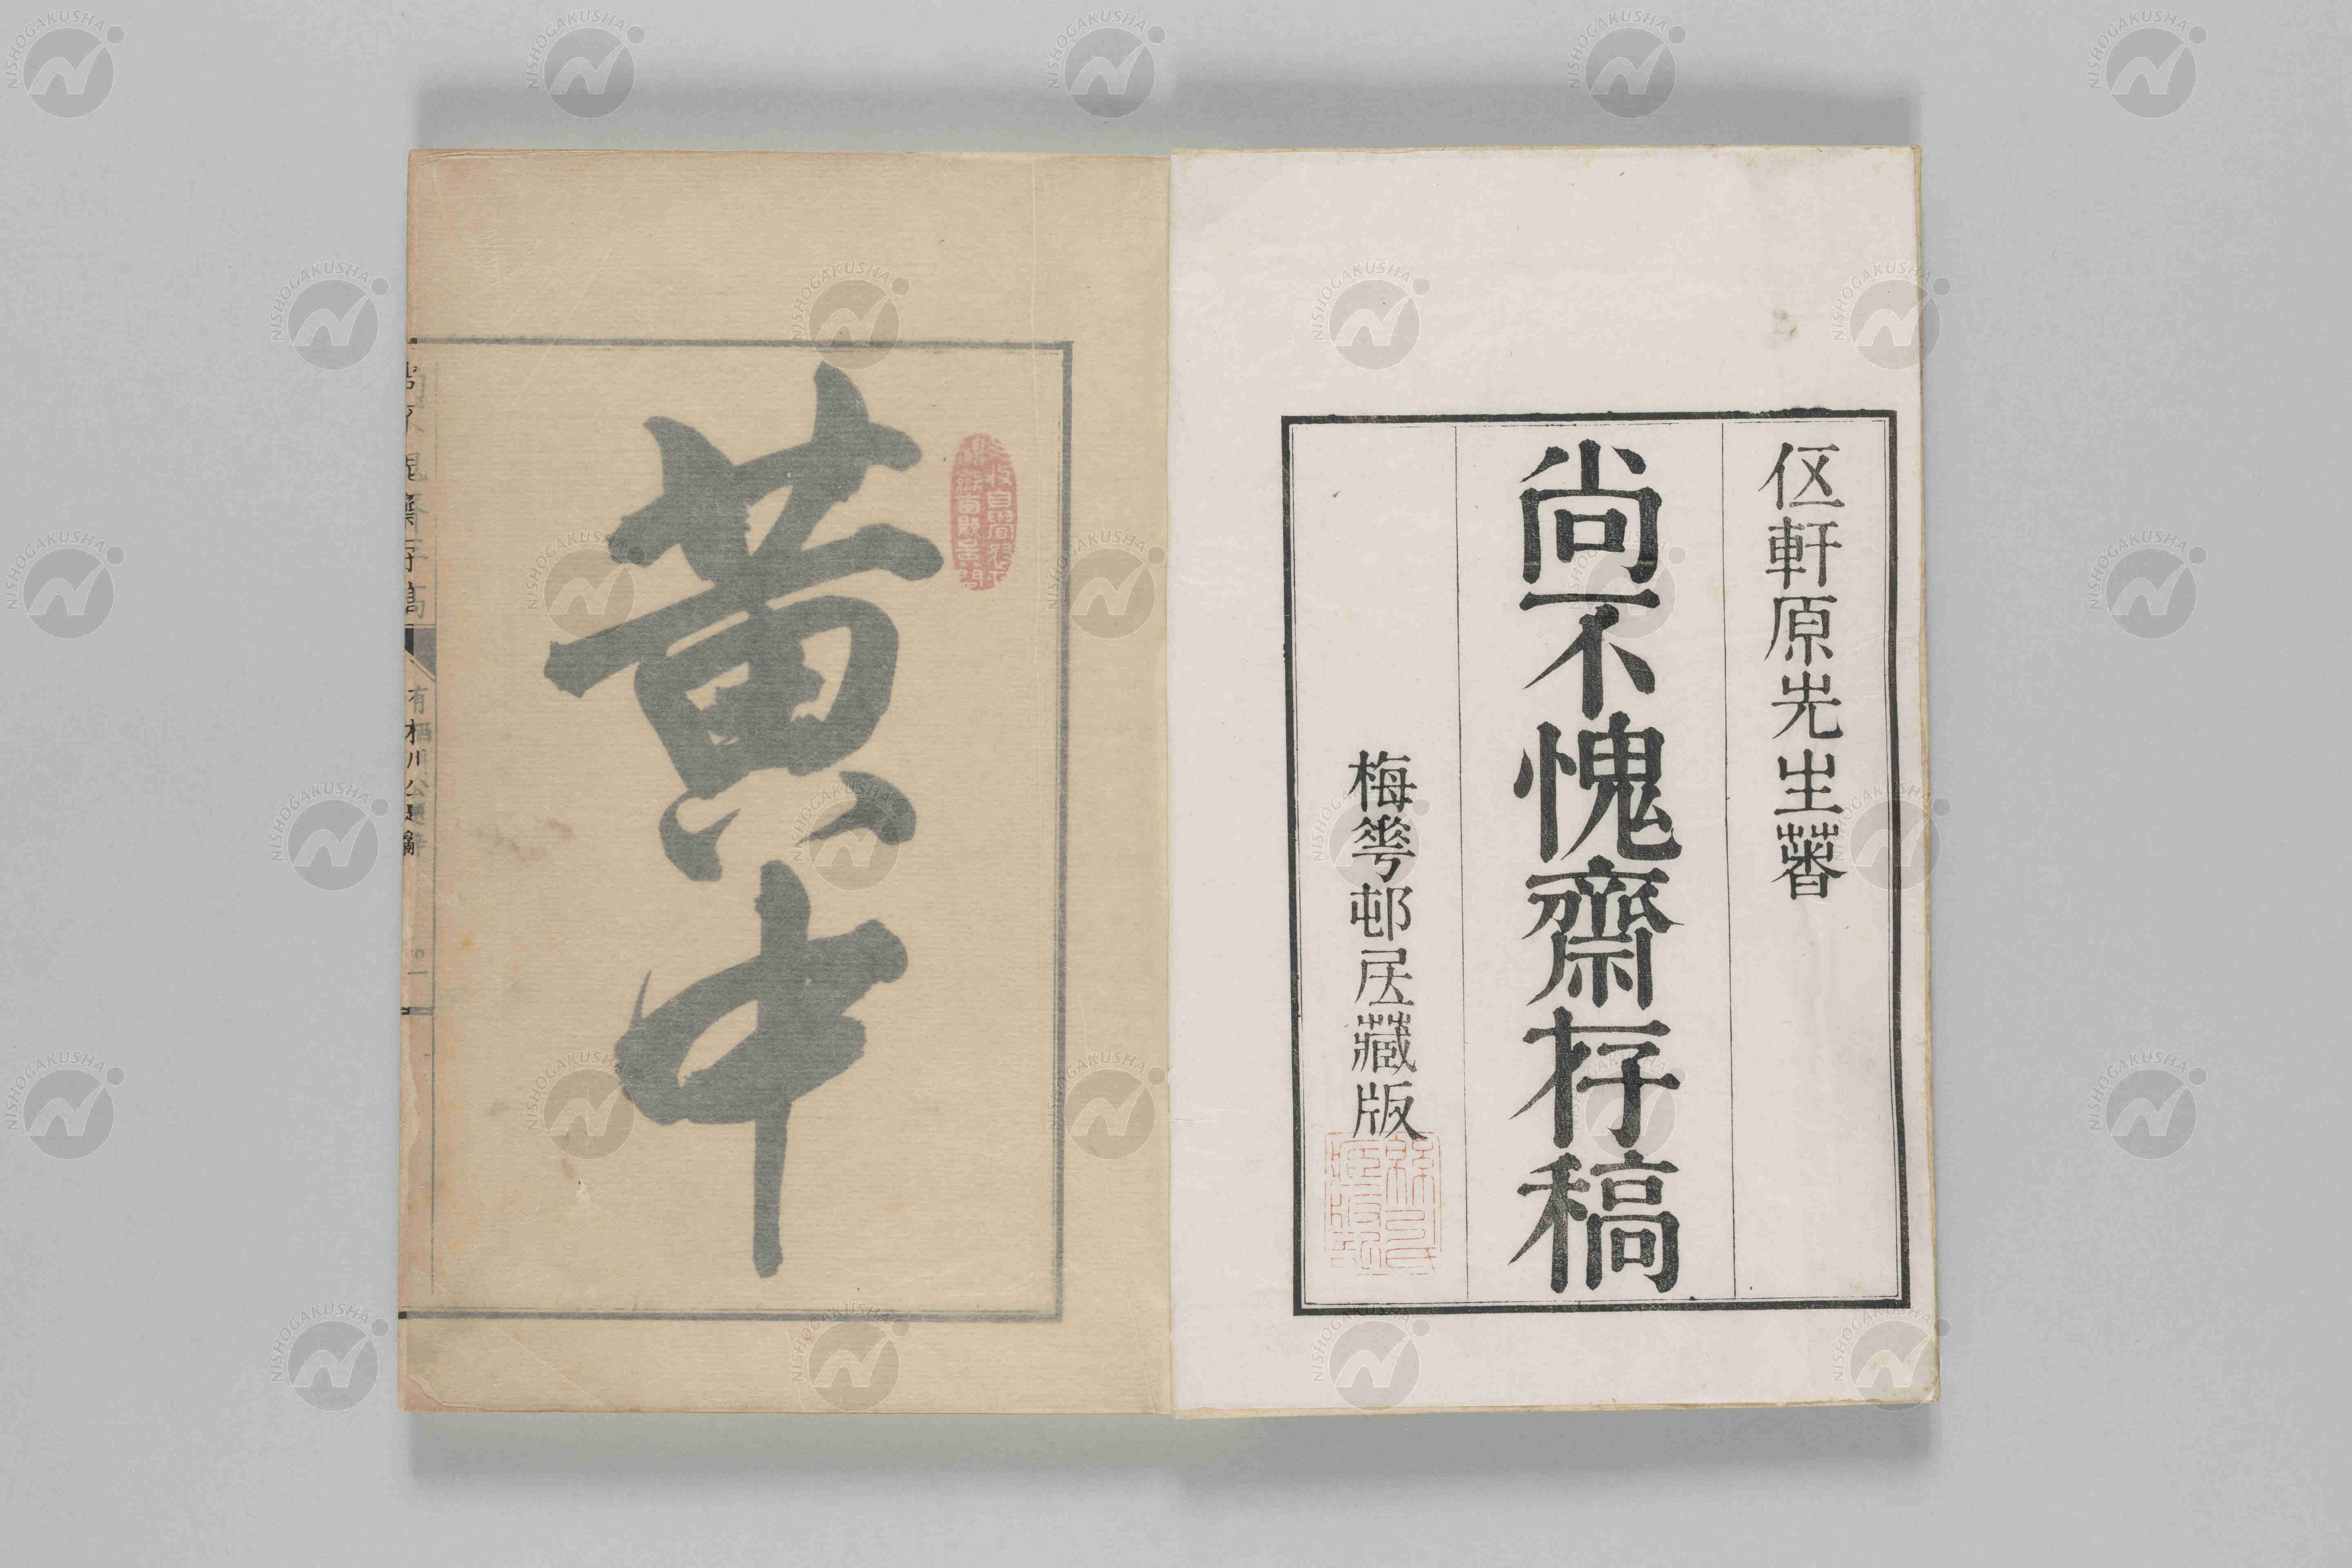 伍軒原先生著
尚不愧齋存稿
梅華邨居藏版
黄中
尚不愧齋存稿
有栖川公題辭
NISHOGAKUSHA